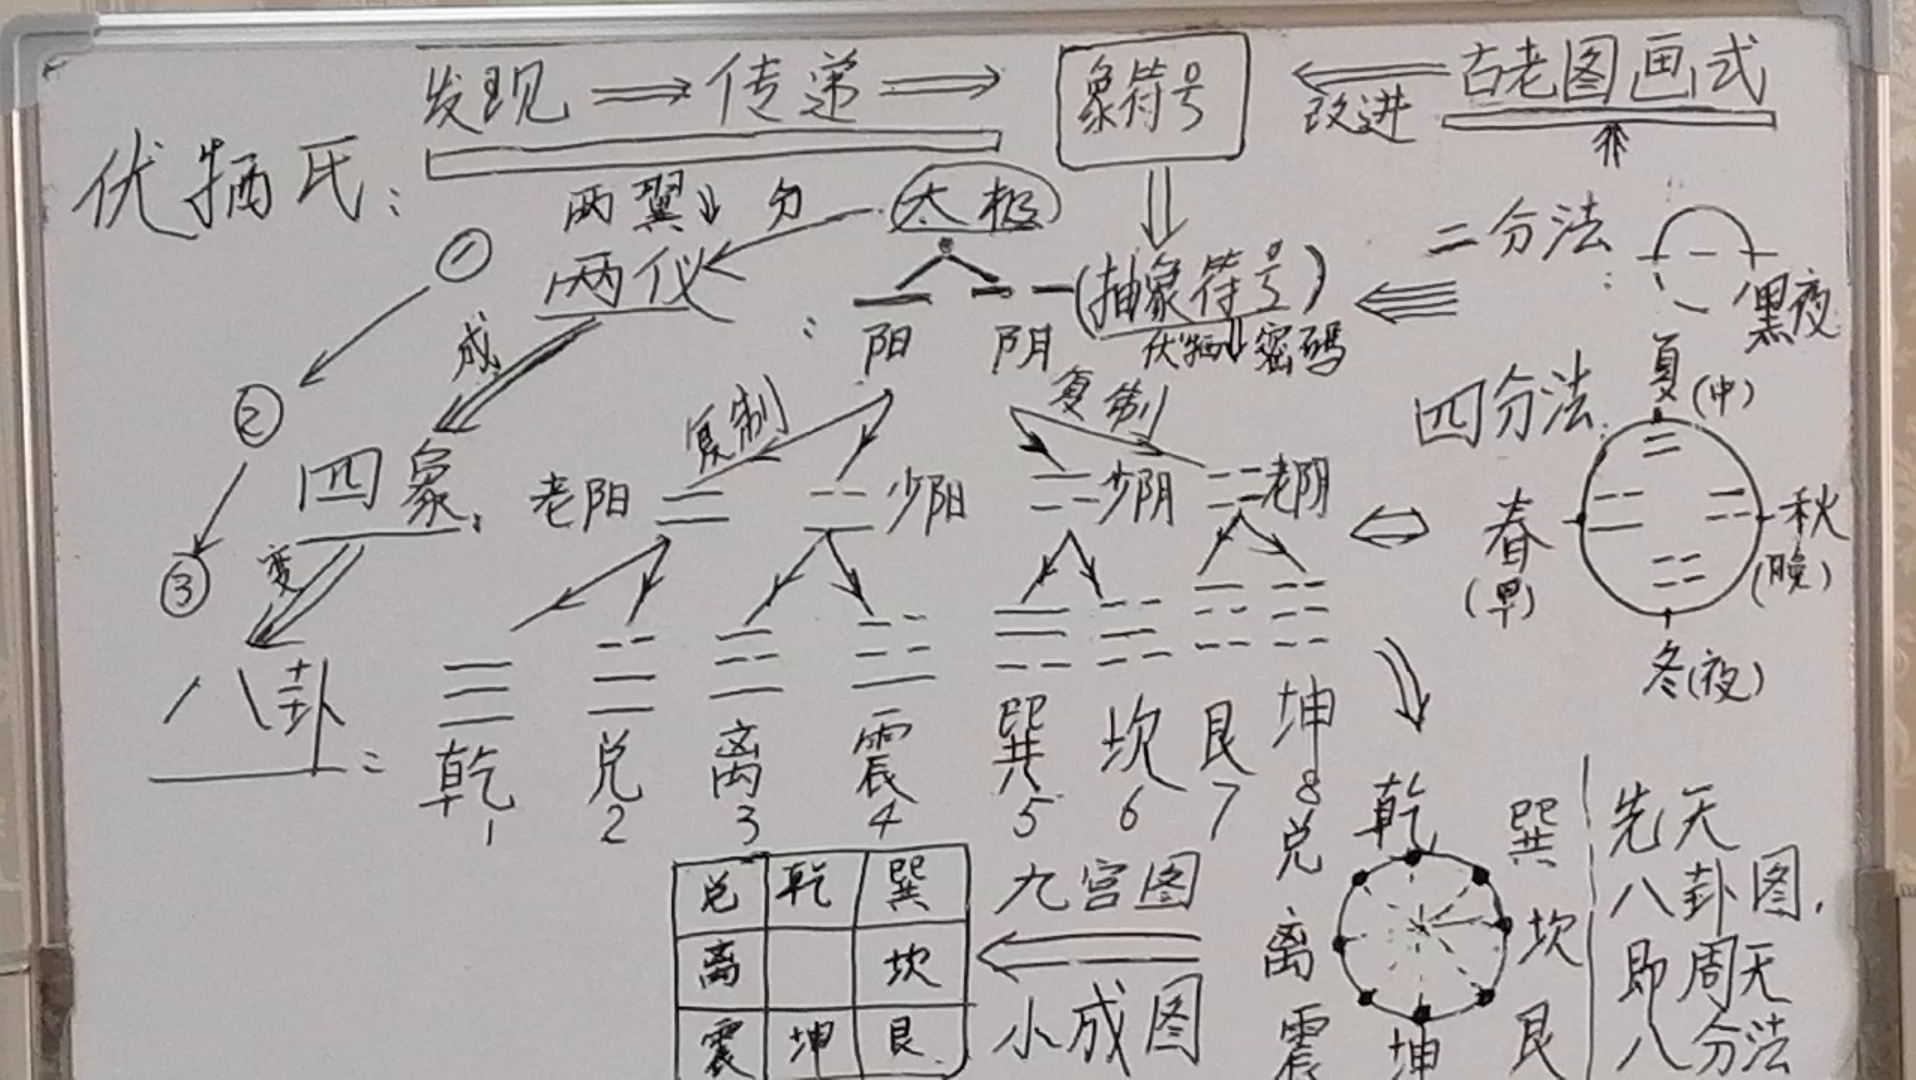 发现 传递 象符号 改进 古老图画式
伏牺氏：
两翼 分 太极
① 两仪 ： (抽象符号) 二分法：
阳 阴 伏牺密码 黑夜
成 复制 复制 夏(中)
② 四分法
四象： 老阳 少阳 少阴 老阴 春 秋
(早) (晚)
③ 变
冬(夜)
八卦：
乾 兑 离 震 巽 坎 艮 坤
1 2 3 4 5 6 7 8
兑 乾 巽 九宫图 兑 乾 巽 先天
八卦图,
离 坎 离 坎 即周天
震 坤 艮 小成图 震 坤 艮 八分法